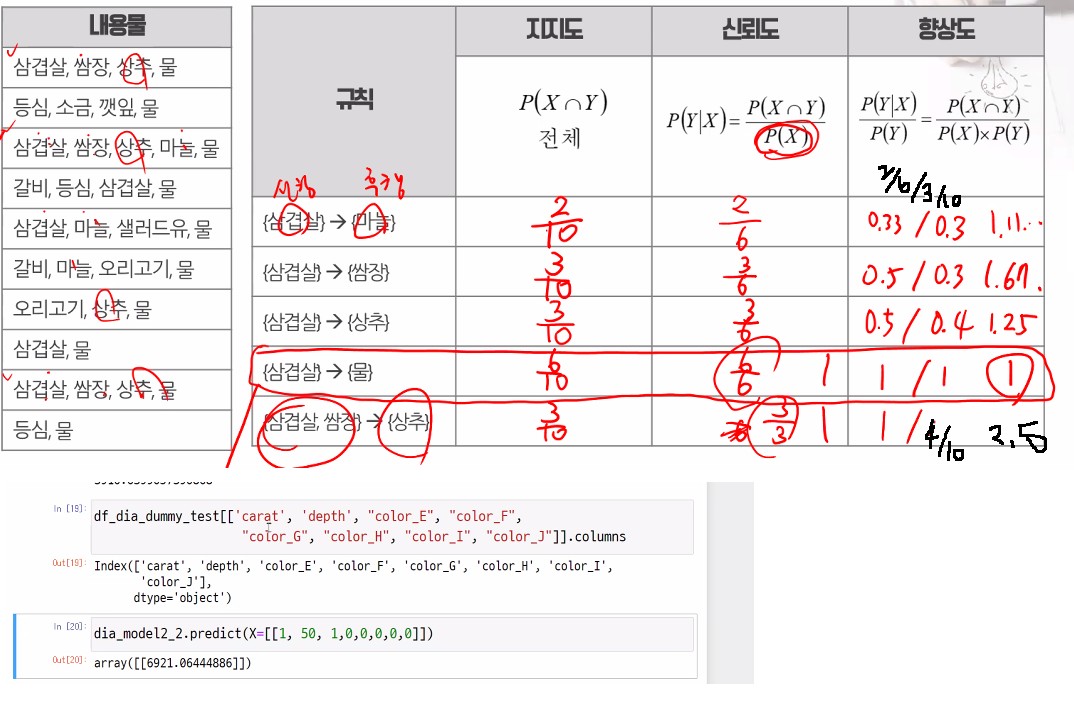 내용물
삼겹살, 쌈장, 상추, 물
등심, 소금, 깻잎, 물
삼겹살, 쌈장, 상추, 마늘, 물
갈비, 등심, 삼겹살, 물
삼겹살, 마늘, 샐러드유, 물
갈비, 마늘, 오리고기, 물
오리고기, 상추, 물
삼겹살, 물
삼겹살, 쌈장, 상추, 물
등심, 물
규칙 지지도 신뢰도 향상도
P(X∩Y)
전체
P(Y|X) = P(X∩Y) / P(X)
P(Y|X) / P(Y) = P(X∩Y) / P(X)×P(Y)
2/6/3/10
{삼겹살} → {마늘} 2/10 2/6 0.33 / 0.3 1.11...
{삼겹살} → {쌈장} 3/10 3/6 0.5 / 0.3 1.67.
{삼겹살} → {상추} 3/10 3/6 0.5 / 0.4 1.25
{삼겹살} → {물} 6/10 6/6 1 1 / 1 1
{삼겹살, 쌈장} → {상추} 3/10 3/3 1 1 / 4/10 2.50
In [19]: df_dia_dummy_test[['carat', 'depth', "color_E", "color_F",
"color_G", "color_H", "color_I", "color_J"]].columns
Out[19]: Index(['carat', 'depth', 'color_E', 'color_F', 'color_G', 'color_H', 'color_I',
'color_J'],
dtype='object')
In [20]: dia_model2_2.predict(X=[[1, 50, 1,0,0,0,0,0]])
Out[20]: array([[6921.06444886]])